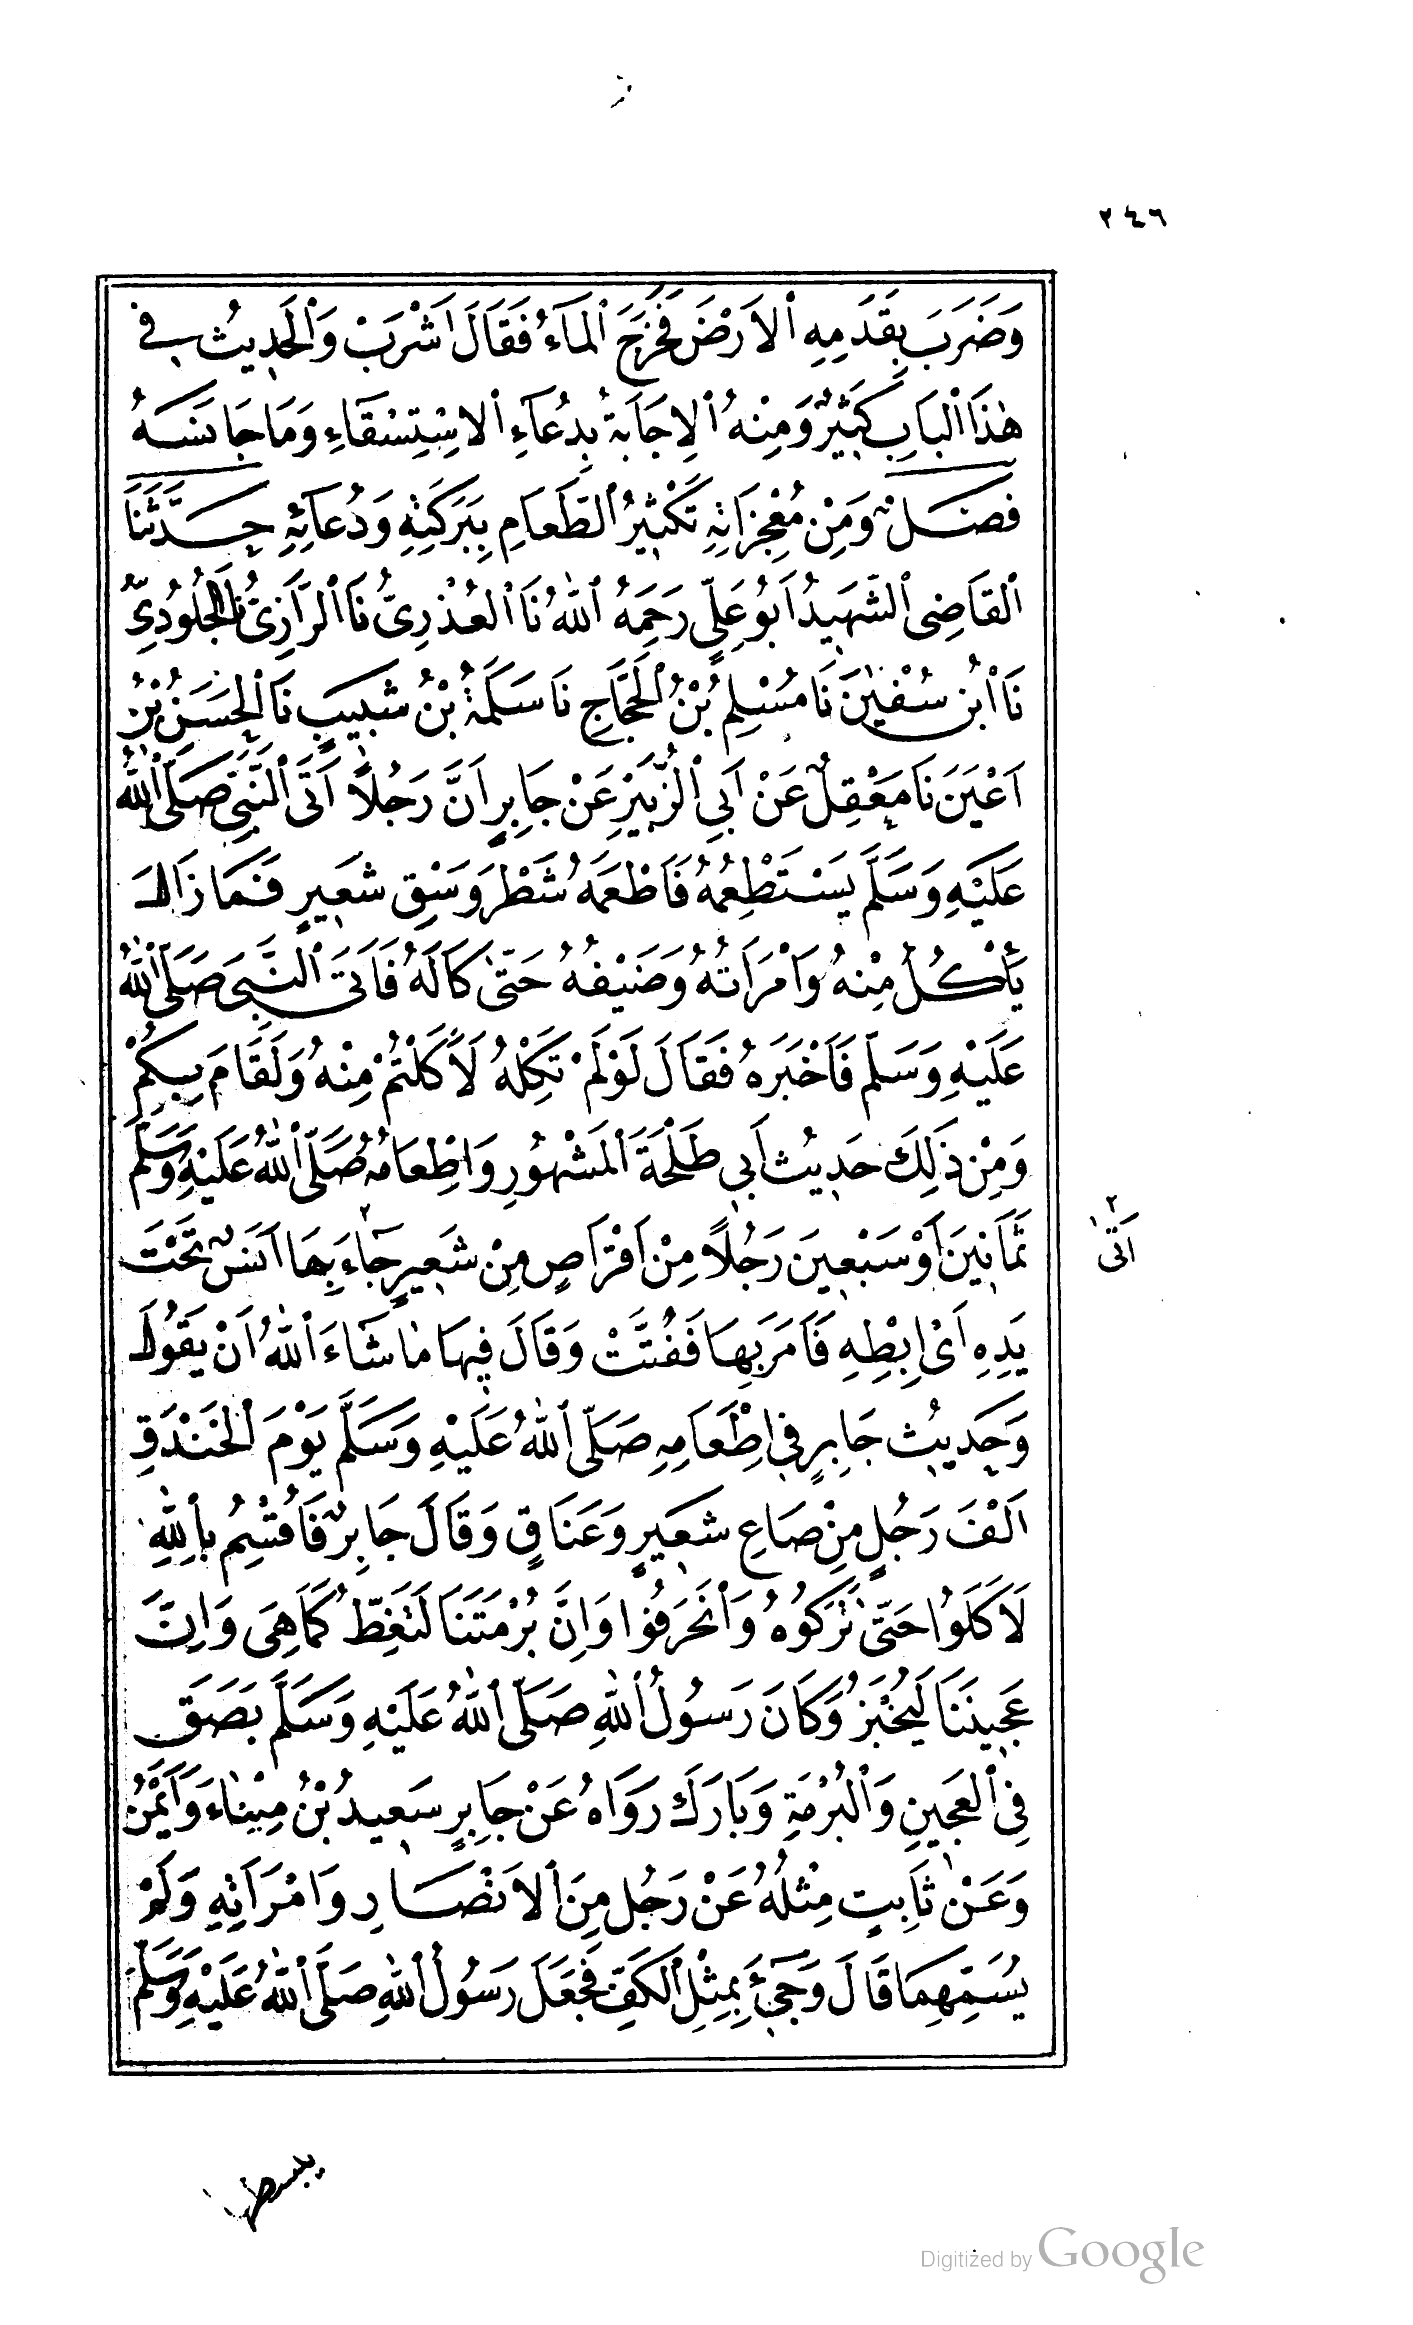 ٢٤٦
وَضَرَبَ بِقَدَمِهِ ٱلْاَرْضَ فَخَرَجَ ٱلْمَآءُ فَقَالَ ٱشْرَبْ وَٱلْحَدِيثُ فِي
هٰذَا ٱلْبَابِ كَثِيرٌ وَمِنْهُ ٱلْاِجَابَةُ بِدُعَآءِ ٱلْاِسْتِسْقَآءِ وَمَا جَانَسَهُ
فَصْلٌ وَمِنْ مُعْجِزَاتِهِ تَكْثِيرُ ٱلطَّعَامِ بِبَرَكَتِهِ وَدُعَآئِهِ حَدَّثَنَا
ٱلْقَاضِى ٱلشَّهِيدُ اَبُو عَلِىٍّ رَحِمَهُ ٱللّٰهُ نَا ٱلْعُذْرِىُّ نَا ٱلرَّازِىُّ نَا ٱلْجُلُودِىُّ
نَا ٱبْنُ سُفْيٰنَ نَا مُسْلِمُ بْنُ ٱلْحَجَّاجِ نَا سَلَمَةُ بْنُ شَبِيبٍ نَا ٱلْحَسَنُ بْنُ
اَعْيَنَ نَا مَعْقِلٌ عَنْ اَبِي ٱلزُّبَيْرِ عَنْ جَابِرٍ اَنَّ رَجُلًا اَتَى ٱلنَّبِىَّ صَلَّى ٱللّٰهُ
عَلَيْهِ وَسَلَّمَ يَسْتَطْعِمُهُ فَاَطْعَمَهُ شَطْرَ وَسْقِ شَعِيرٍ فَمَا زَالَ
يَأْكُلُ مِنْهُ وَامْرَاَتُهُ وَضَيْفُهُ حَتّٰى كَالَهُ فَاَتَى ٱلنَّبِىَّ صَلَّى ٱللّٰهُ
عَلَيْهِ وَسَلَّمَ فَاَخْبَرَهُ فَقَالَ لَوْ لَمْ تَكِلْهُ لَاَكَلْتُمْ مِنْهُ وَلَقَامَ بِكُمْ
وَمِنْ ذَلِكَ حَدِيثُ اَبِي طَلْحَةَ ٱلْمَشْهُورِ وَاِطْعَامُهُ صَلَّى ٱللّٰهُ عَلَيْهِ وَسَلَّمَ
ثَمَانِينَ اَوْ سَبْعِينَ رَجُلًا مِنْ اَقْرَاصٍ مِنْ شَعِيرٍ جَآءَ بِهَا اَنَسٌ تَحْتَ
٢
٢
اَتٰى
يَدِهِ اَىْ اِبِطِهِ فَاَمَرَ بِهَا فَفُتَّتْ وَقَالَ فِيهَا مَا شَآءَ ٱللّٰهُ اَنْ يَقُولَ
وَحَدِيثُ جَابِرٍ فِي اِطْعَامِهِ صَلَّى ٱللّٰهُ عَلَيْهِ وَسَلَّمَ يَوْمَ ٱلْخَنْدَقِ
اَلْفَ رَجُلٍ مِنْ صَاعِ شَعِيرٍ وَعَنَاقٍ وَقَالَ جَابِرٌ فَاُقْسِمُ بِٱللّٰهِ
لَاَكَلُوا حَتّٰى تَرَكُوهُ وَٱنْحَرَفُوا وَاِنَّ بُرْمَتَنَا لَتَغِطُّ كَمَا هِىَ وَاِنَّ
عَجِينَنَا لَيُخْبَزُ وَكَانَ رَسُولُ ٱللّٰهِ صَلَّى ٱللّٰهُ عَلَيْهِ وَسَلَّمَ بَصَقَ
فِي ٱلْعَجِينِ وَٱلْبُرْمَةِ وَبَارَكَ رَوَاهُ عَنْ جَابِرٍ سَعِيدُ بْنُ مِينَاءَ وَاَيْمَنُ
وَعَنْ ثَابِتٍ مِثْلُهُ عَنْ رَجُلٍ مِنَ ٱلْاَنْصَارِ وَامْرَاَتِهِ وَلَمْ
يُسَمِّهِمَا قَالَ وَجِئَ بِمِثْلِ ٱلْكَفِّ فَجَعَلَ رَسُولُ ٱللّٰهِ صَلَّى ٱللّٰهُ عَلَيْهِ وَسَلَّمَ
يبسطها
Digitized by Google